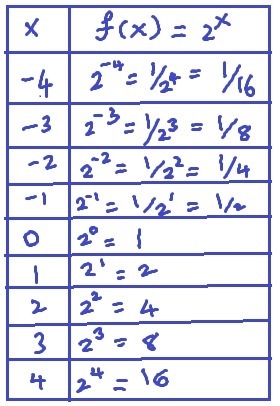 x f(x) = 2^x
-4 2^-4 = 1/2^4 = 1/16
-3 2^-3 = 1/2^3 = 1/8
-2 2^-2 = 1/2^2 = 1/4
-1 2^-1 = 1/2^1 = 1/2
0 2^0 = 1
1 2^1 = 2
2 2^2 = 4
3 2^3 = 8
4 2^4 = 16